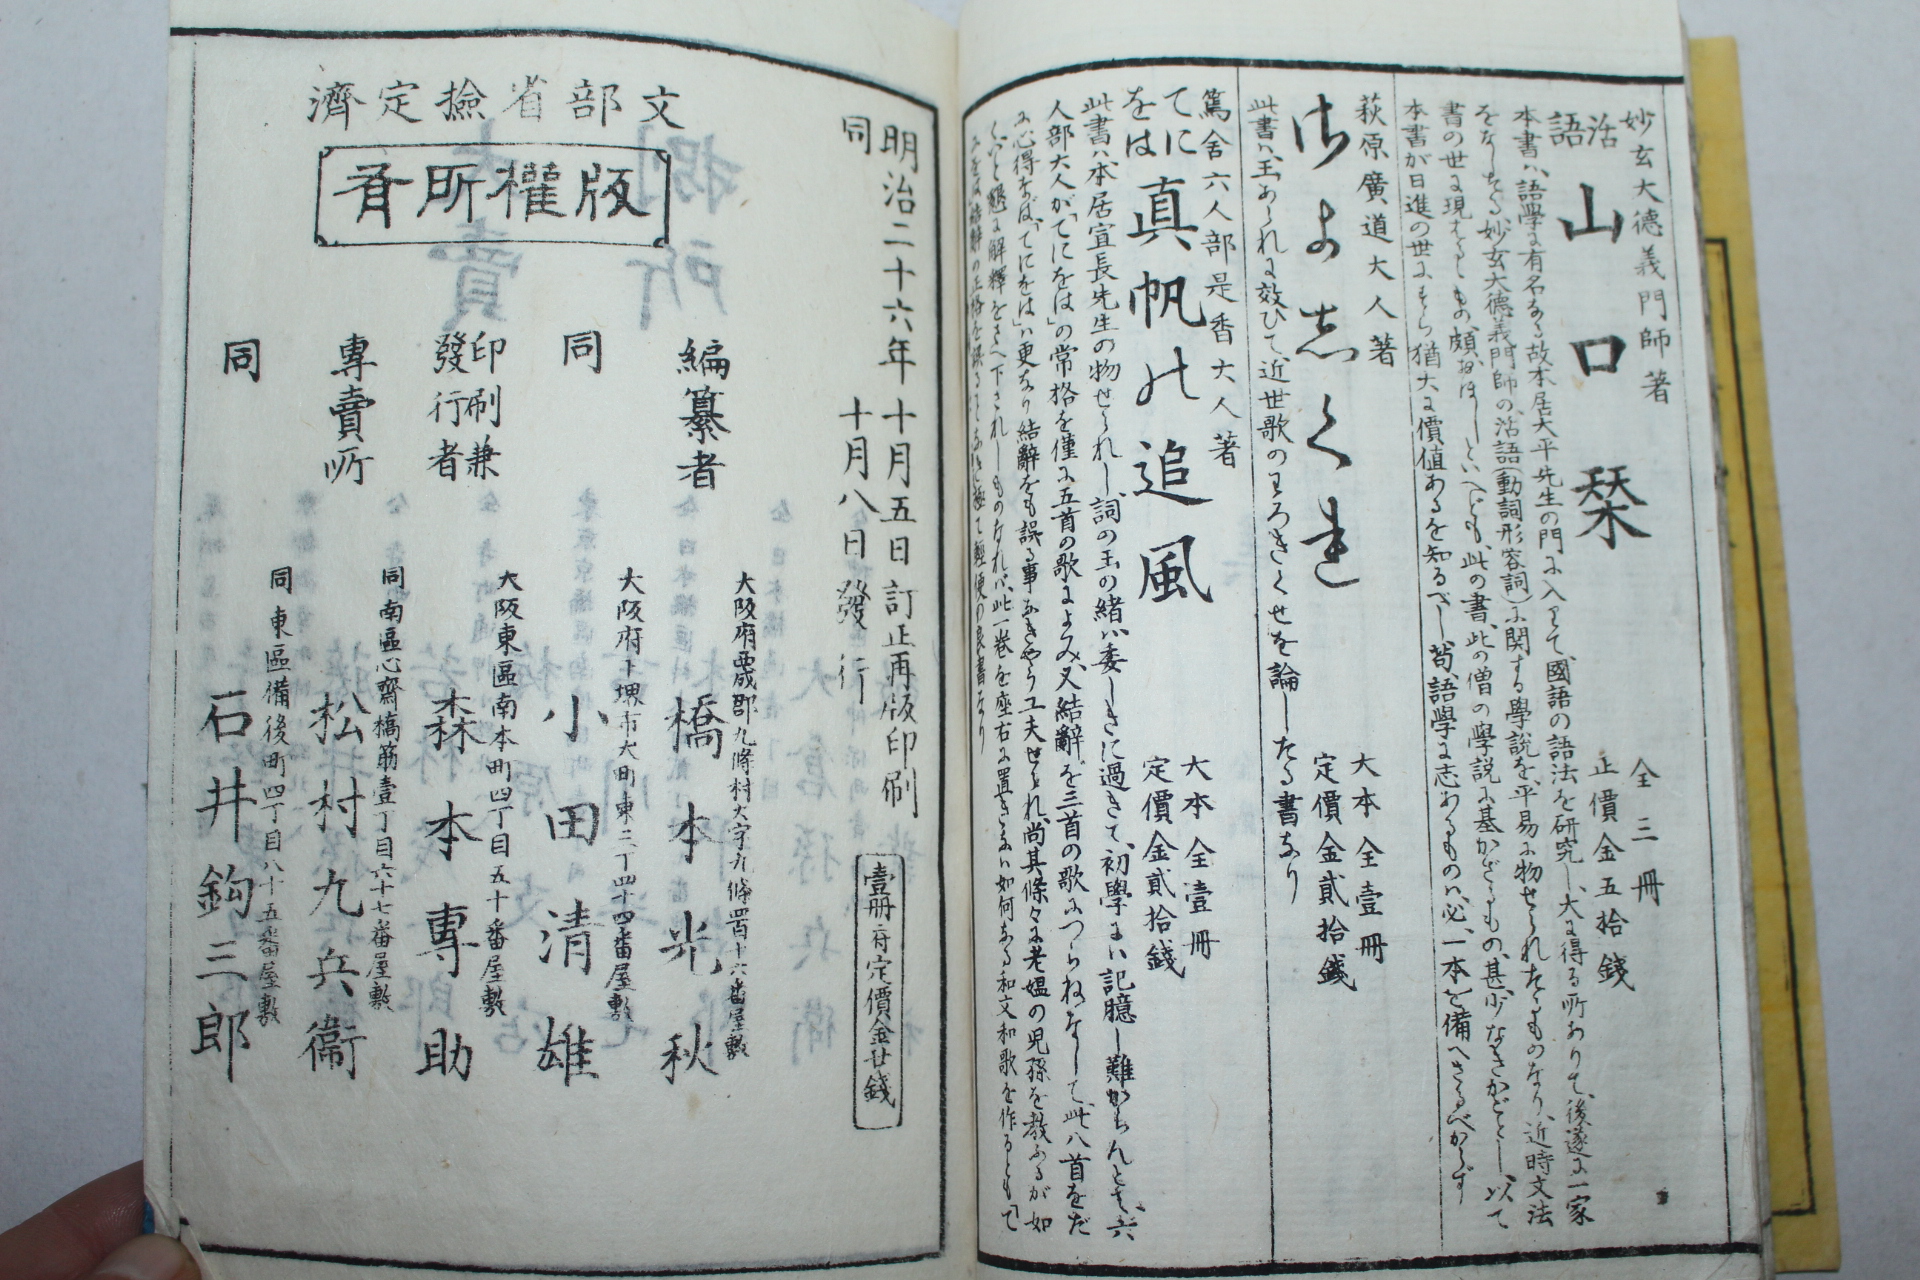 妙玄大德義門師著
活語 山口栞
全三冊
正價金五拾錢
本書ハ語學に有名なる故本居大平先生の門に入りて、國語の語法を研究し、大に得る所ありて、後遂に一家
をなしたる妙玄大德義門師の活語(動詞形容詞)に関する學説を、平易に物せられたるものなり、近時文法
書の世に現はるゝもの、頗おほしといへども、此の書、此の僧の學説に基かざるもの、甚少なきがごとし、以て
本書が日進の世にすら猶大に價値あるを知るべし、苟、語學に志あるものハ、必、一本を備へざるべからず
萩原廣道大人著
さよしぐれ
大本全壹冊
定價金貳拾錢
此書ハ、玉あられに效ひて、近世歌のわろきくせを論したる書なり
篤舍六人部是香大人著
てにをは 真帆の追風
大本全壹冊
定價金貳拾錢
此書ハ、本居宣長先生の物せられし、詞の玉の緒ハ、委しきに過きて、初學にハ、記臆し難からんとて、六
人部大人が「てにをは」の常格を、僅に五首の歌によみ、又、結辭を三首の歌につらねなして、此八首をだ
に心得なば、「てにをは」ハ更なり、結辭をも誤る事なきやう工夫せられ、尚其條々に、老媼の児孫を教ふるが如
文部省撿定濟
版權所有
明治二十六年十月五日訂正再版印刷
同 十月八日 發行
壹冊ニ付定價金廿錢
編纂者
大阪府西成郡九條村大字九條四百十六番屋敷
橋本光秋
同
大阪府下堺市大町東二丁四十四番屋敷
小田清雄
印刷兼發行者
大阪東區南本町四丁目五十番屋敷
森本專助
專賣所
同南區心齋橋筋壹丁目六十七番屋敷
松村九兵衞
同
同東區備後町四丁目八十五番屋敷
石井鈎三郎